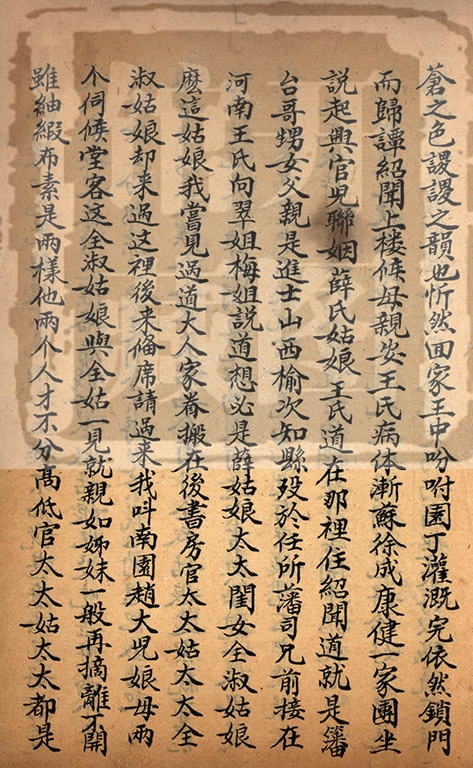 蒼之色謖謖之韻也忻然囬家王中吩咐園丁灌溉完依然鎖門
而歸譚紹聞上楼候母親安王氏病体漸蘇徐成康健一家團坐
說起與官児聯姻薛氏姑娘王氏道在那裡住紹聞道就是籓
台哥甥女父親是進士山西榆次知縣歿於任所藩司兄前接在
河南王氏向翠姐梅姐說道想必是薛姑娘太太閨女全淑姑娘
麽這姑娘我嘗見過道大人家眷搬在後書房官太太姑太太全
淑姑娘却来過这裡後来偹席請過来我呌南園趙大児娘母兩
个伺候堂客这全淑姑娘與全姑一見就親如姊妹一般再摘離不開
雖紬緞布素是兩樣他兩个人才不分高低官太太姑太太都是